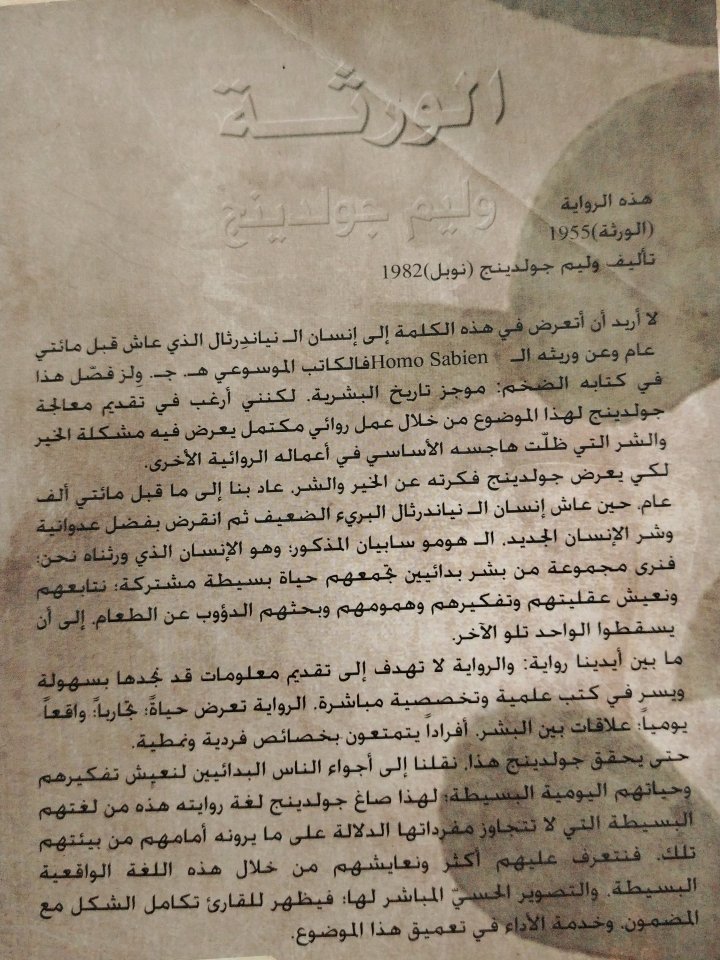 الورثة
وليم جولدينج
هذه الرواية
(الورثة)1955
تأليف وليم جولدينج (نوبل)1982
لا أريد أن أتعرض في هذه الكلمة إلى إنسان الـ نياندِرثال الذي عاش قبل مائتي
عام وعن وريثه الـ Homo Sabien فالكاتب الموسوعي هـ. جـ. وِلز فصّل هذا
في كتابه الضخم: موجز تاريخ البشرية. لكنني أرغب في تقديم معالجة
جولدينج لهذا الموضوع من خلال عمل روائي مكتمل يعرض فيه مشكلة الخير
والشر التي ظلّت هاجسه الأساسي في أعماله الروائية الأخرى.
لكي يعرض جولدينج فكرته عن الخير والشر، عاد بنا إلى ما قبل مائتي ألف
عام، حين عاش إنسان الـ نياندرثال البريء الضعيف ثم انقرض بفضل عدوانية
وشر الإنسان الجديد، الـ هومو سابيان المذكور؛ وهو الإنسان الذي ورثناه نحن؛
فنرى مجموعة من بشر بدائيين تجمعهم حياة بسيطة مشتركة؛ نتابعهم
ونعيش عقليتهم وتفكيرهم وهمومهم وبحثهم الدؤوب عن الطعام، إلى أن
يسقطوا الواحد تلو الآخر.
ما بين أيدينا رواية: والرواية لا تهدف إلى تقديم معلومات قد نجدها بسهولة
ويسر في كتب علمية وتخصصية مباشرة. الرواية تعرض حياةً؛ تجارباً؛ واقعاً
يومياً؛ علاقات بين البشر، أفراداً يتمتعون بخصائص فردية ونمطية.
حتى يحقق جولدينج هذا، نقلنا إلى أجواء الناس البدائيين لنعيش تفكيرهم
وحياتهم اليومية البسيطة؛ لهذا صاغ جولدينج لغة روايته هذه من لغتهم
البسيطة التي لا تتجاوز مفرداتها الدلالة على ما يرونه أمامهم من بيئتهم
تلك. فنتعرف عليهم أكثر ونعايشهم من خلال هذه اللغة الواقعية
البسيطة. والتصوير الحسيّ المباشر لها؛ فيظهر للقارئ تكامل الشكل مع
المضمون، وخدمة الأداء في تعميق هذا الموضوع.